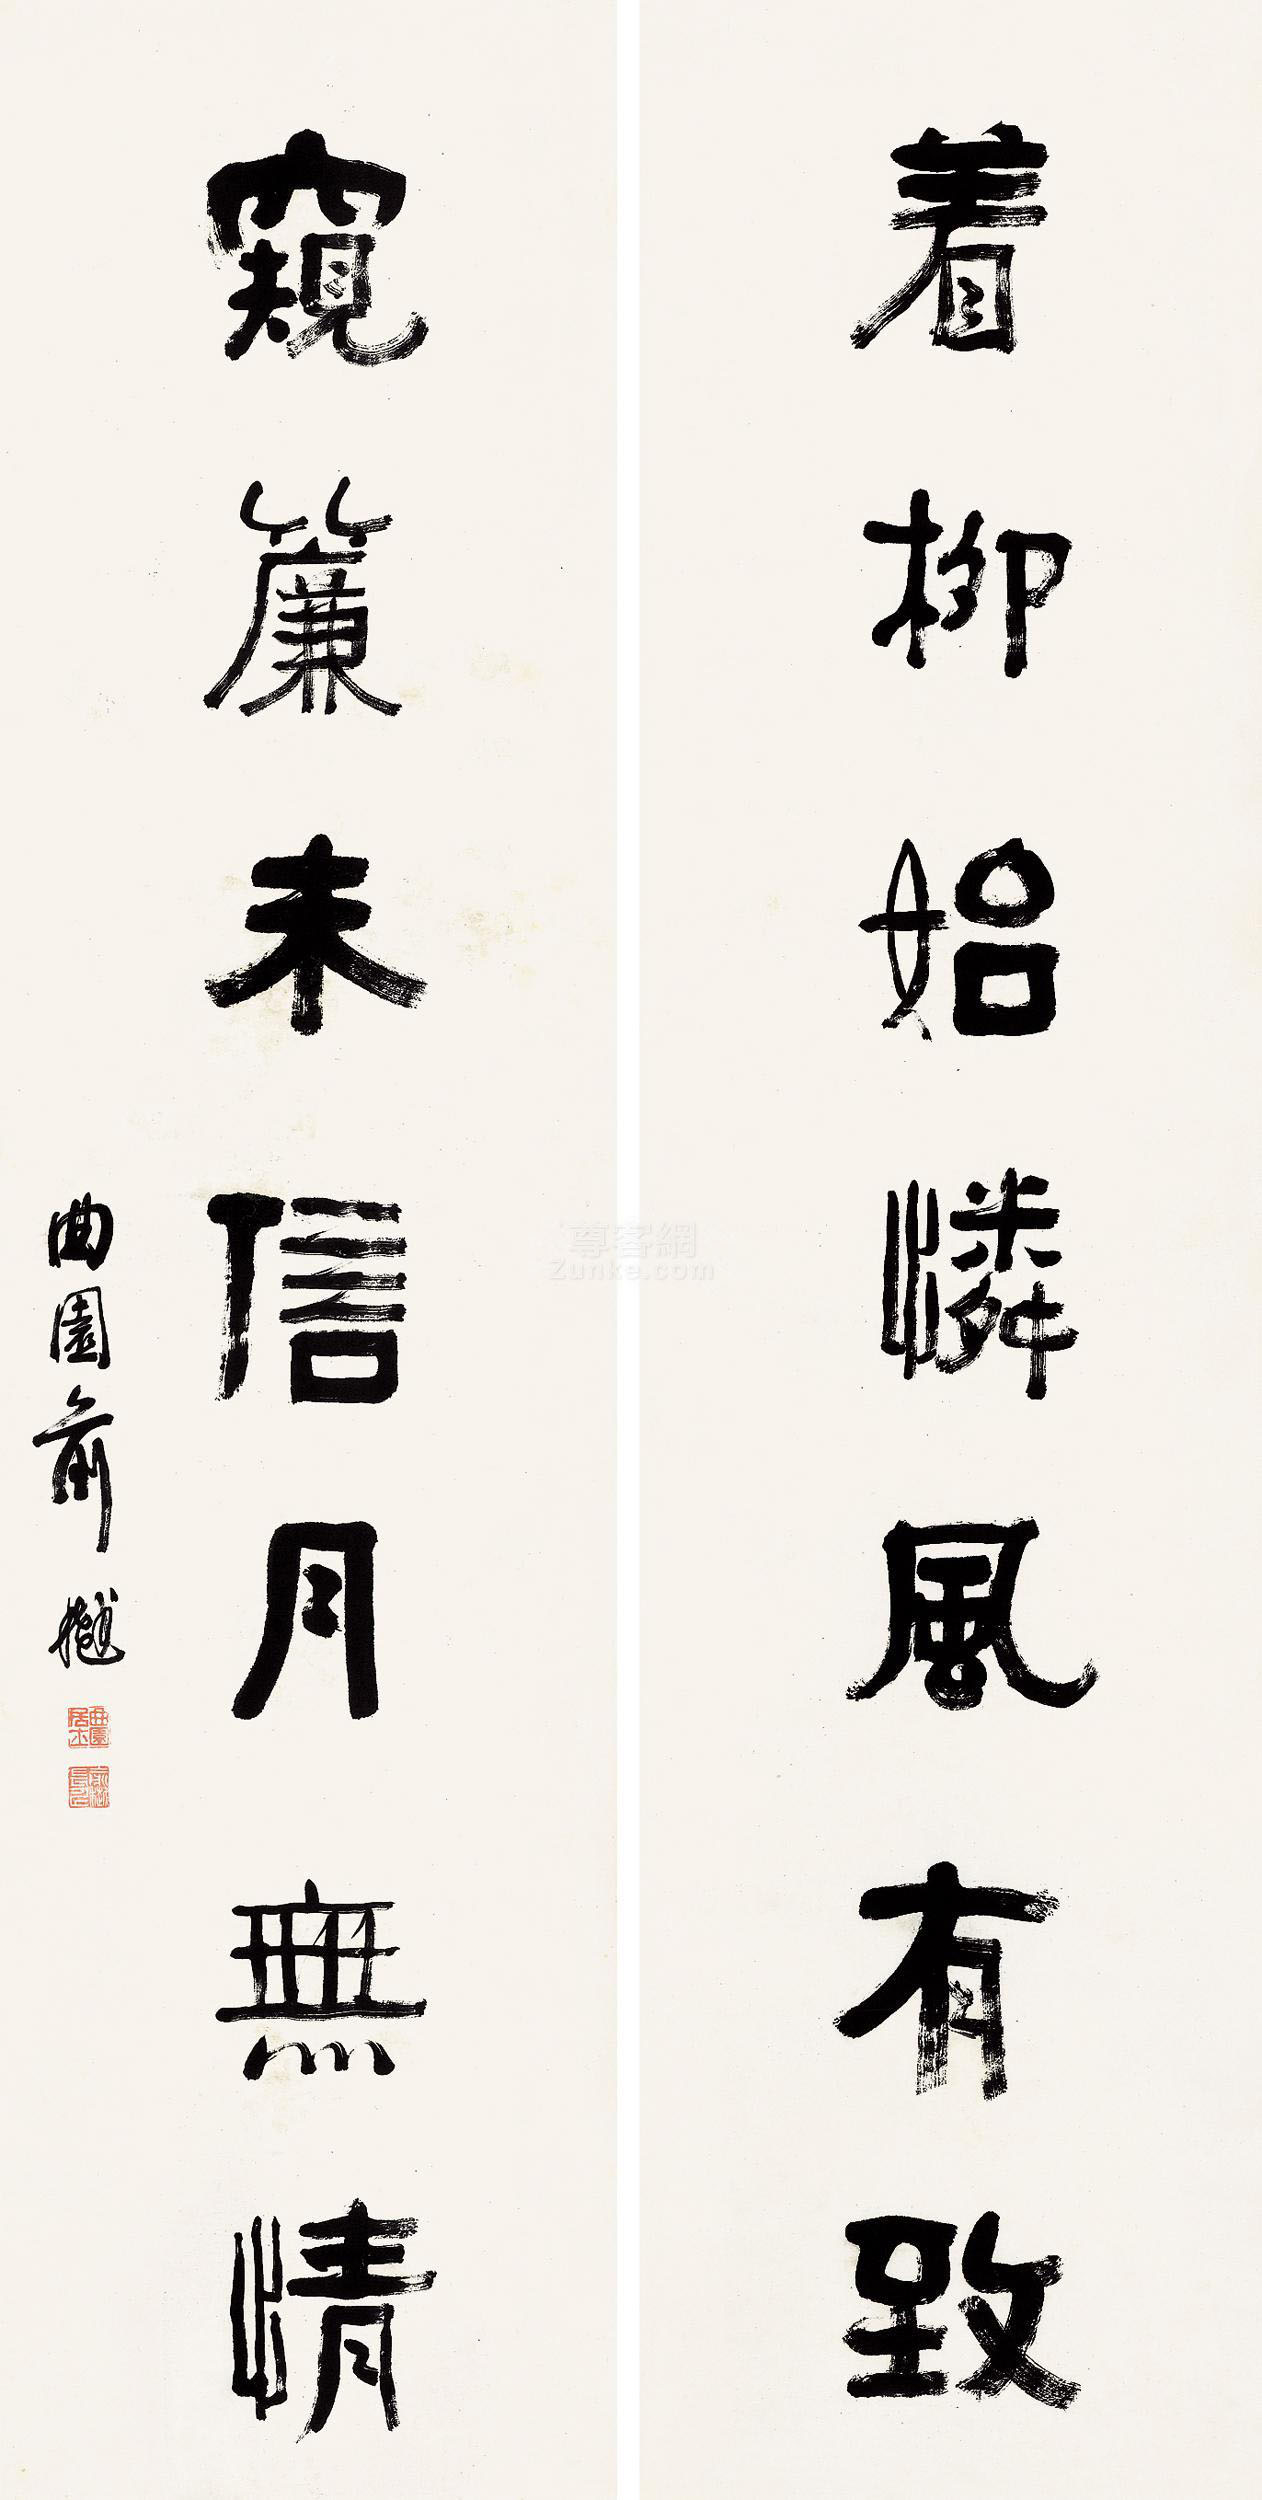 着柳始憐風有致
窺簾未信月無情
曲園俞樾
曲園居士
尊客網
Zunke.com